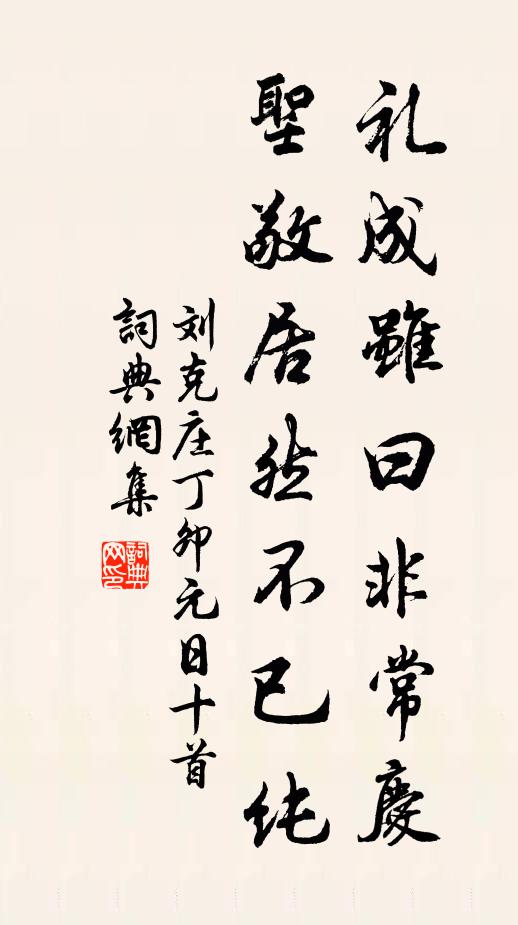 礼成雖曰非常慶
聖敬居然不已纯
刘克庄丁卯元日十首
詞典網集
詞典
网印